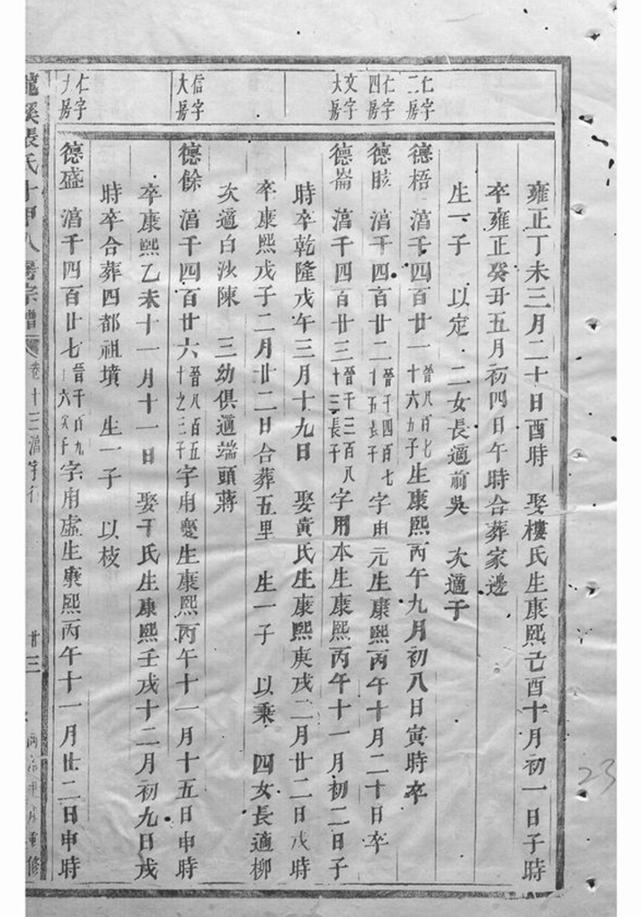 雍正丁未三月二十日酉時 娶樓氏生康熙己酉十月初一日子時
卒雍正癸丑五月初四日午時合葬家邊
生一子 以定 二女長適前吳 次適于
仁字二房
德梧 濳千四百廿一 晉八百七十六九子 生康熙丙午九月初八日寅時卒
仁字四房
德眩 濳千四百廿二 晉千四百七十五長子 字用元生康熙丙午十月二十日卒
文字大房
德崙 濳千四百廿三 晉千三百八十三長子 字用本生康熙丙午十一月初二日子
時卒乾隆戊午三月十九日 娶黃氏生康熙庚戌二月廿二日戌時
卒康熙戊子二月廿二日合葬五里 生一子 以乘 四女長適柳
次適白沙陳 三幼俱適端頭蔣
信字大房
德餘 濳千四百廿六 晉八百五十之三子 字用夔生康熙丙午十一月十五日申時
卒康熙乙未十一月十一日 娶于氏生康熙壬戌十二月初九日戌
時卒合葬四都祖墳 生一子 以枝
仁字 房
德盛 濳千四百廿七 晉千百九十六 子 字用虛生康熙丙午十一月廿二日申時
龍溪張氏 甲八房宗譜 卷十三濳字行 廿三 重修
23